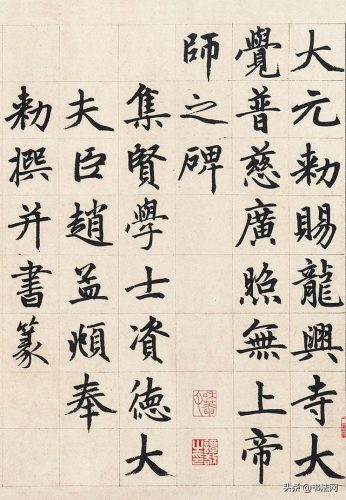 大元勑賜龍興寺大
覺普慈廣照無上帝
師之碑
集賢學士資德大
夫臣趙孟頫奉
勑撰并書篆
头条@书法网